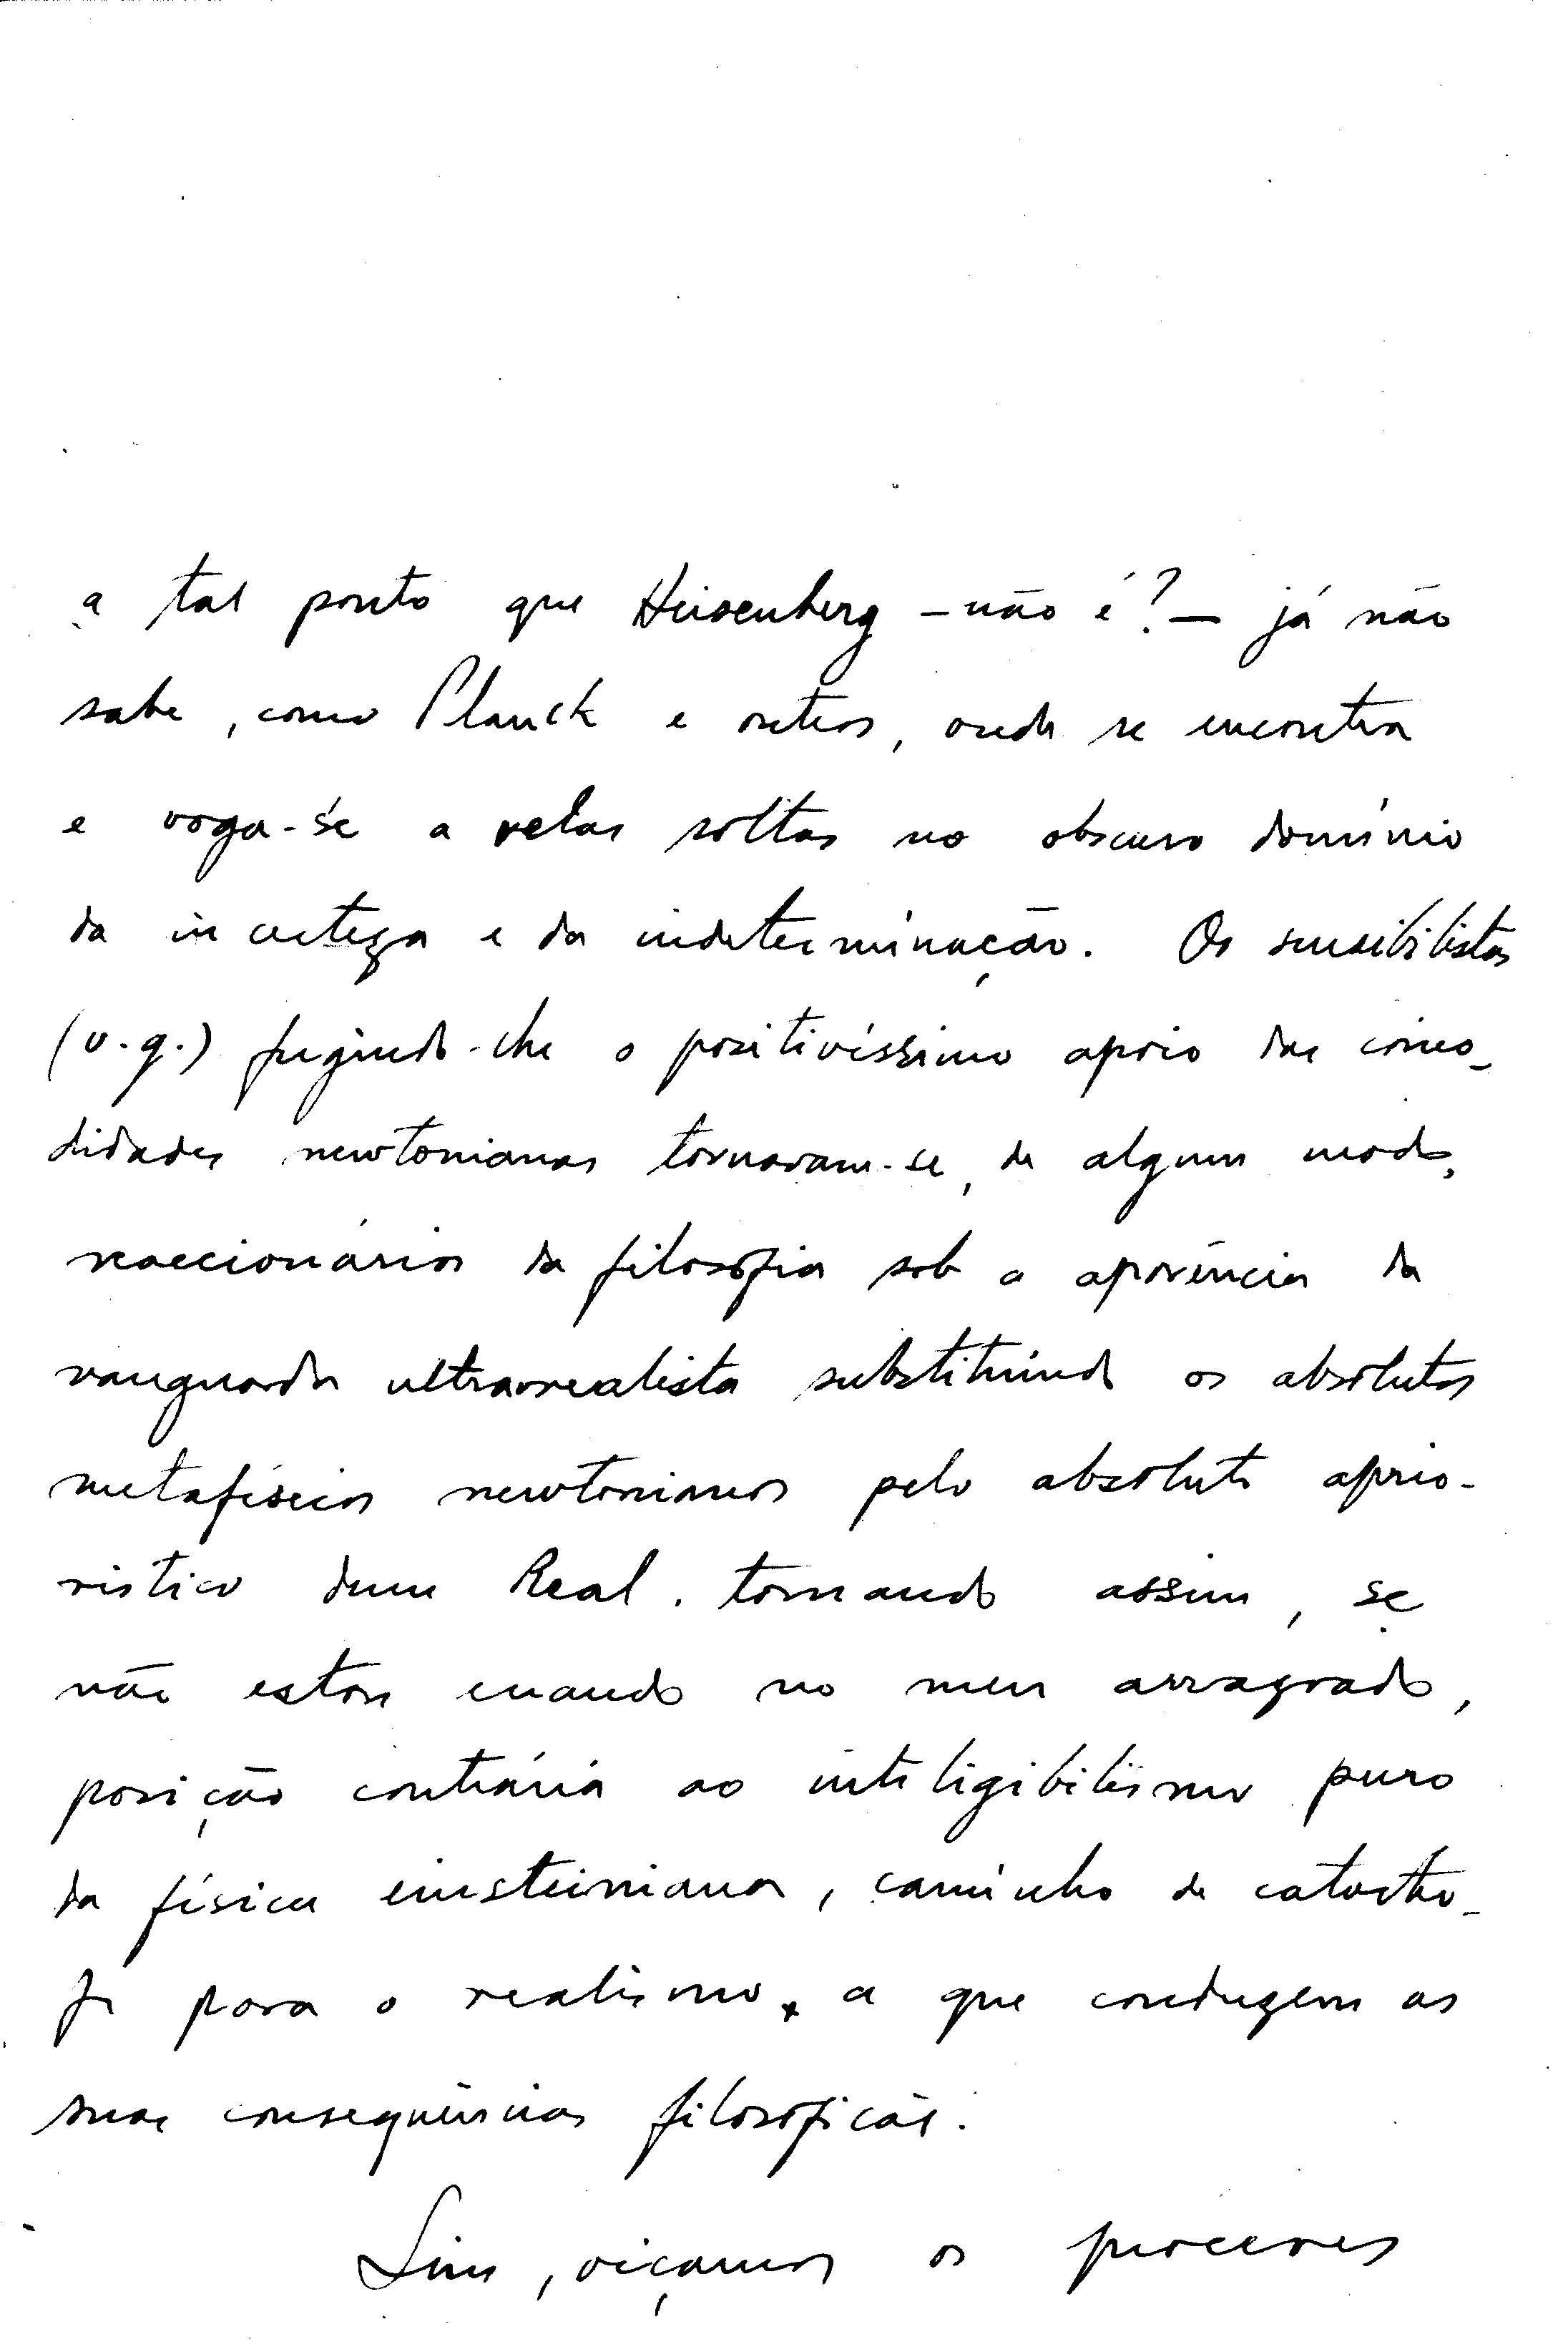 a tal ponto que Heisenberg – não é? – já não
sabe, como Planck e outros, onde se encontra
e voga-se a velas soltas no obscuro domínio
da incerteza e da indeterminação. Os sensibilistas
(v.g.) fugindo-lhe o positivíssimo apoio das como-
didades newtonianas tornaram-se, de algum modo,
reaccionários da filosofia sob a aparência da
vanguarda ultrarrealista substituindo os absolutos
metafísicos newtonianos pelo absoluto aprio-
ristico dum Real. tomando assim, se
não estou errando no meu arrazoado,
posição contrária ao inteligibilismo puro
da física einsteiniana, caminho de catastro-
fe para o realismo, a que conduzem as
suas consequências filosóficas.
Sim, oiçamos os próceres